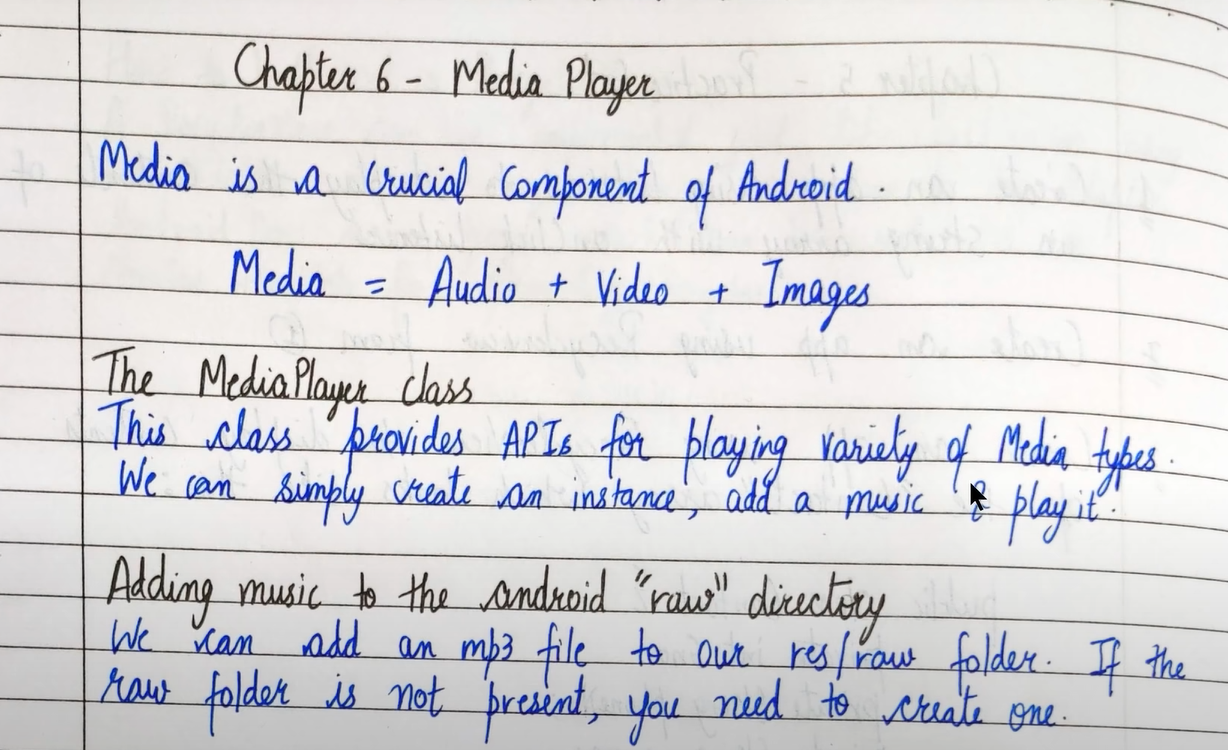 Chapter 6 - Media Player
Media is a Crucial Component of Android.
Media = Audio + Video + Images
The MediaPlayer class
This class provides APIs for playing variety of Media types.
We can simply create an instance, add a music & play it.
Adding music to the android "raw" directory
We can add an mp3 file to our res/raw folder. If the
raw folder is not present, you need to create one.